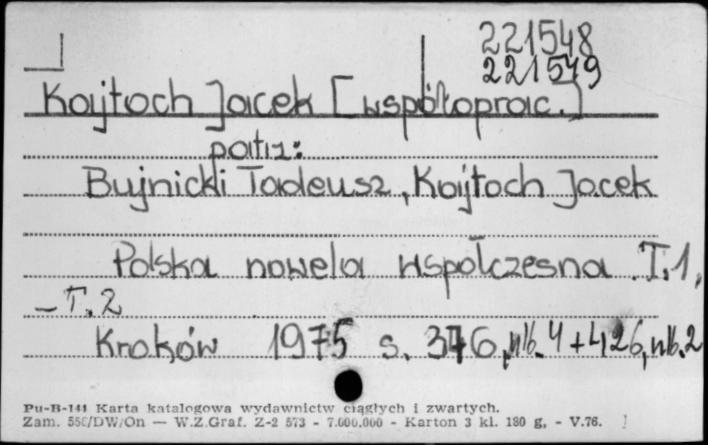 221548
221549
Kajtoch Jacek [współoprac.]
patrz:
Bujnicki Tadeusz, Kajtoch Jacek
Polska nowela współczesna. T.1,
- T. 2
Kraków 1975 s. 376, nlb. 4 + 426, nlb. 2
Pu-B-141 Karta katalogowa wydawnictw ciągłych i zwartych.
Zam. 550/DW/On — W.Z.Graf. Z-2 573 - 7.000.000 - Karton 3 kl. 180 g, - V.76.